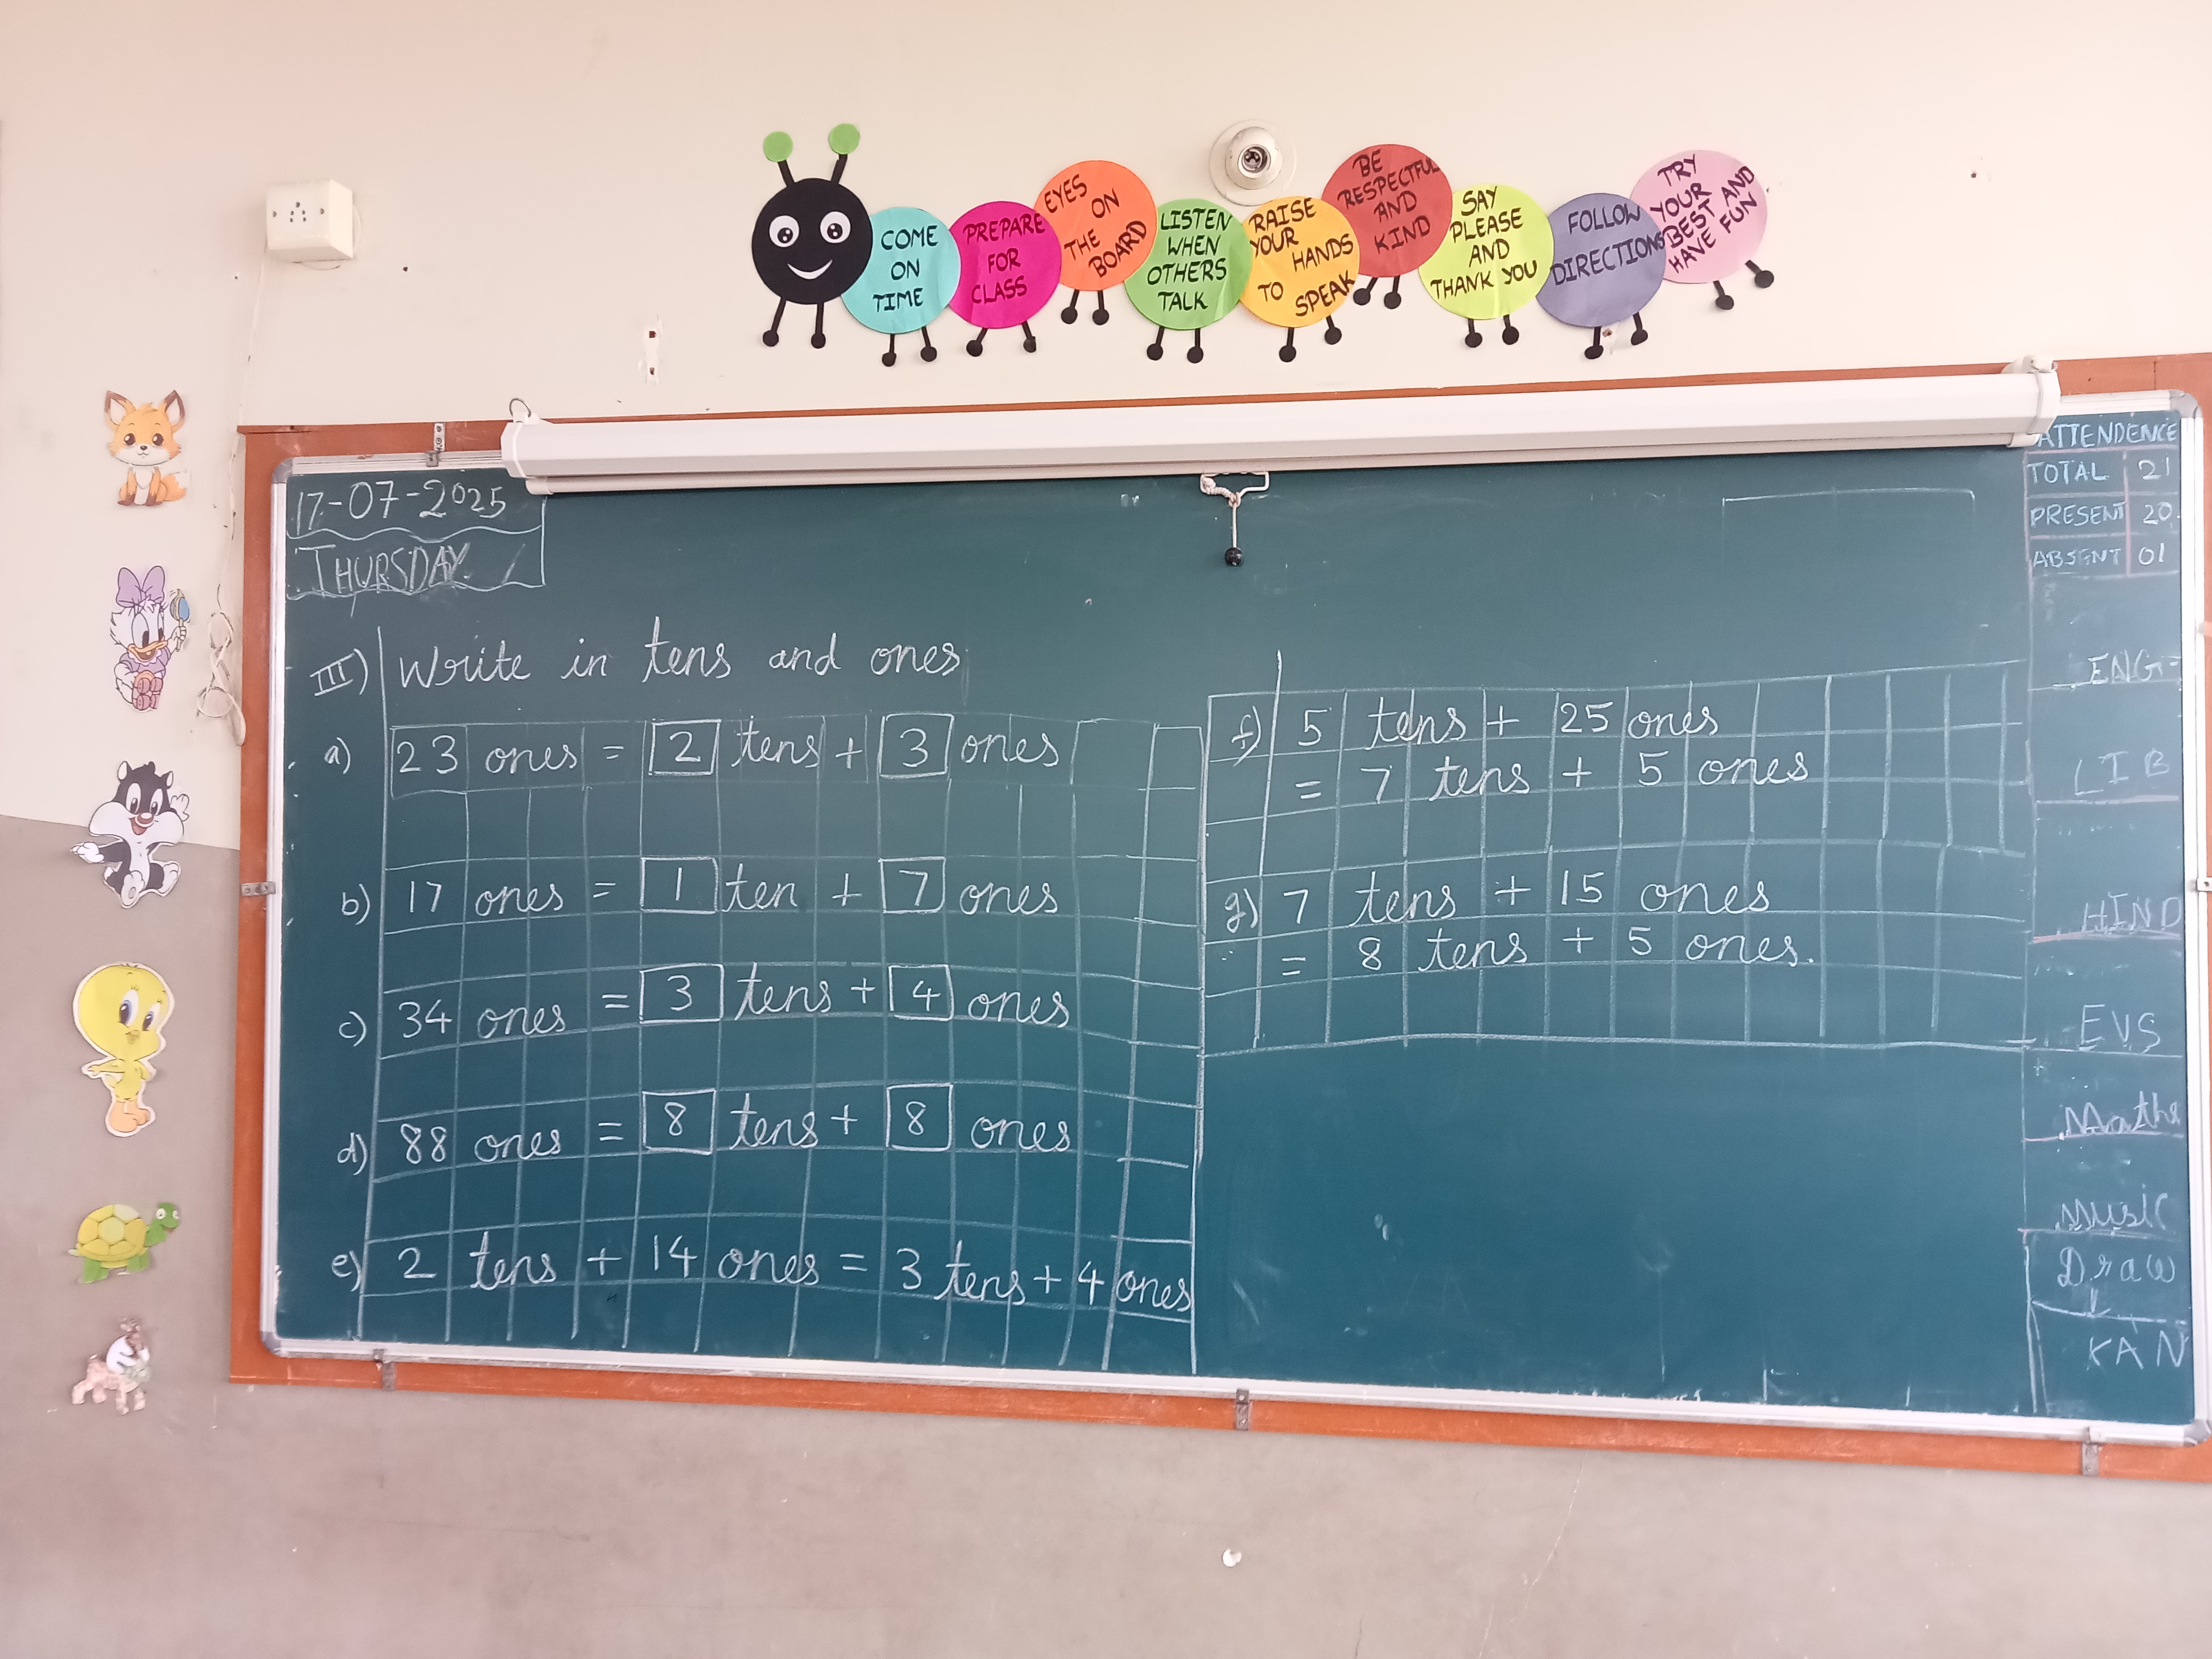 COME
ON
TIME
PREPARE
FOR
CLASS
EYES
ON
THE
BOARD
LISTEN
WHEN
OTHERS
TALK
RAISE
YOUR
HANDS
TO SPEAK
BE
RESPECTFUL
AND
KIND
SAY
PLEASE
AND
THANK YOU
FOLLOW
DIRECTIONS
TRY
YOUR
BEST AND
HAVE FUN
17-07-2025
THURSDAY
III) Write in tens and ones
a) 23 ones = 2 tens + 3 ones
b) 17 ones = 1 ten + 7 ones
c) 34 ones = 3 tens + 4 ones
d) 88 ones = 8 tens + 8 ones
e) 2 tens + 14 ones = 3 tens + 4 ones
f) 5 tens + 25 ones
= 7 tens + 5 ones
g) 7 tens + 15 ones
= 8 tens + 5 ones.
ATTENDENCE
TOTAL 21
PRESENT 20
ABSENT 01
ENG
LIB
HIND
EVS
Maths
Music
Draw
KAN